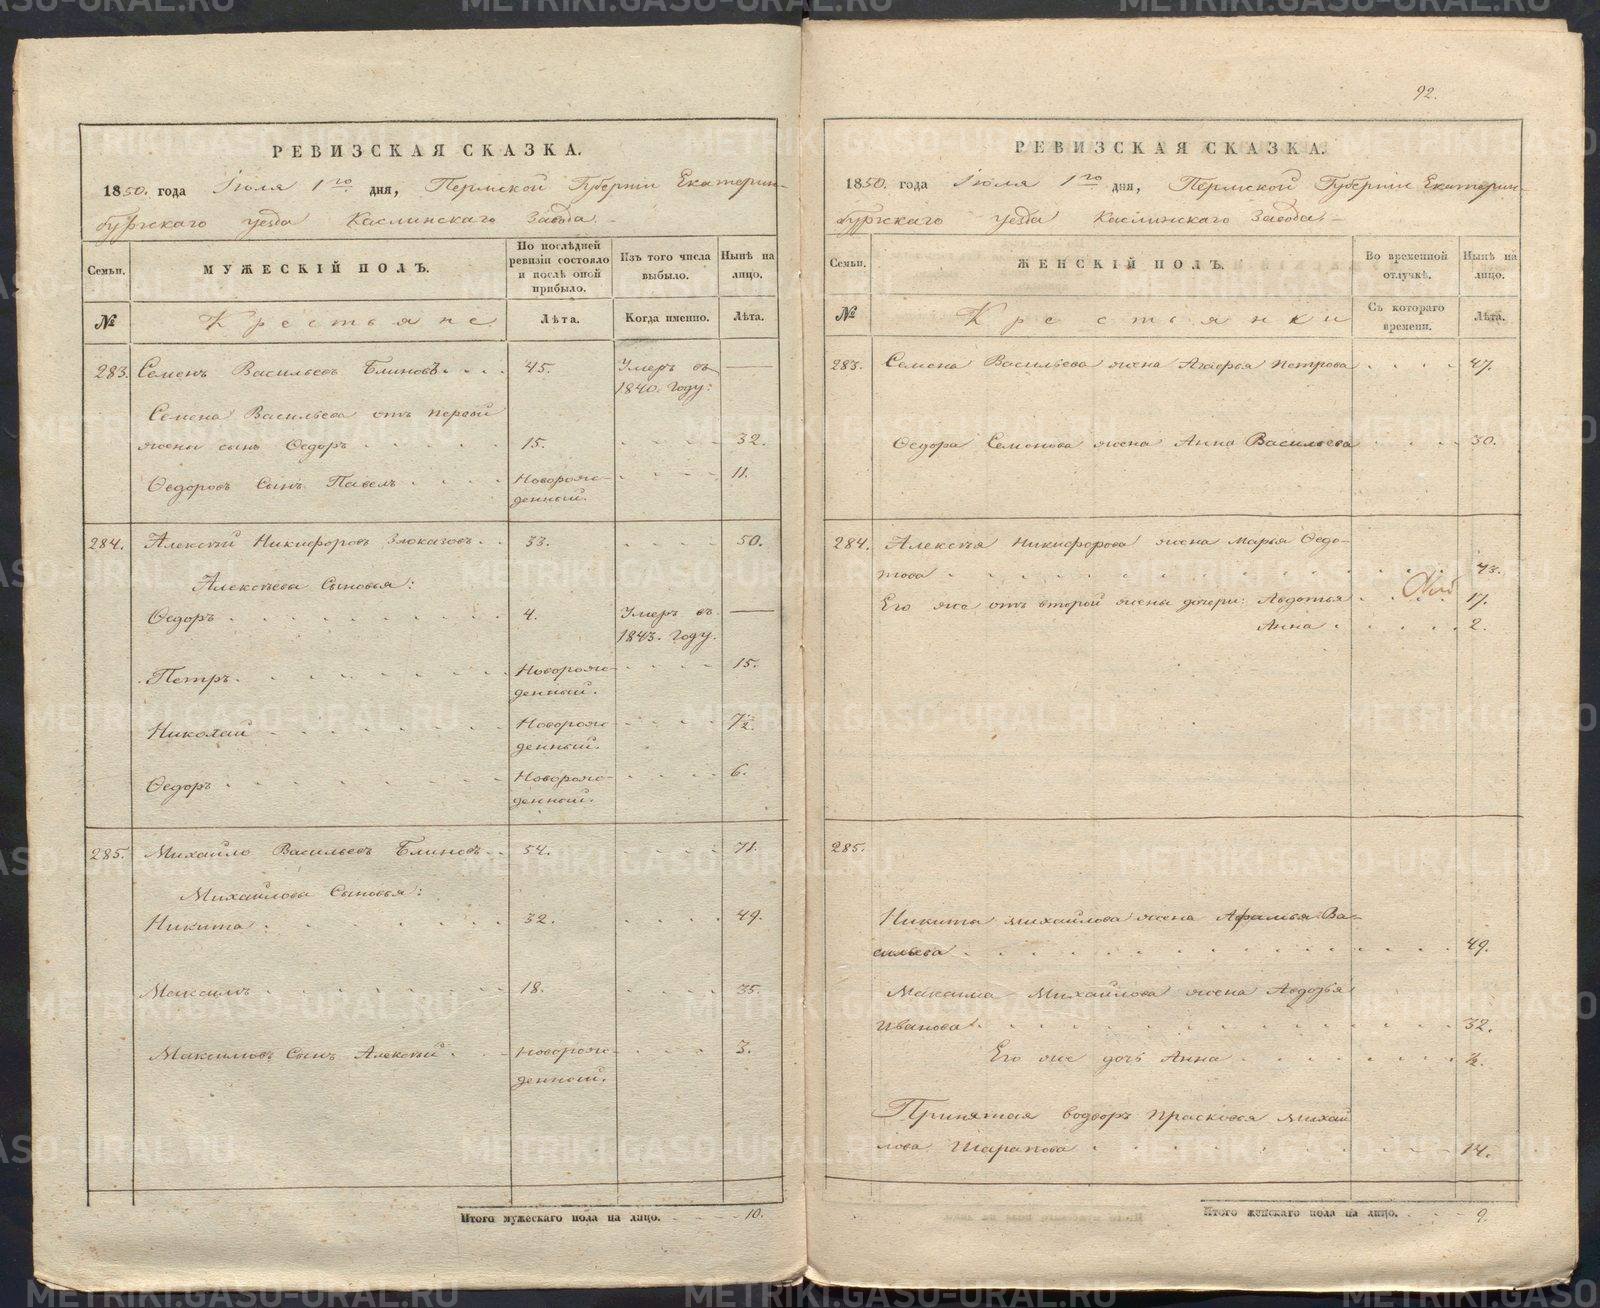 92.
РЕВИЗСКАЯ СКАЗКА.
1850. года Іюля 1го дня, Пермской Губерніи Екатерин-
бургскаго уезда Каслинскаго Завода.
Семьи.
МУЖЕСКІЙ ПОЛЪ.
По послѣдней ревизіи состояло и послѣ оной прибыло.
Изъ того числа выбыло.
Нынѣ на лицо.
№
Крестьяне
Лѣта.
Когда именно.
Лѣта.
283. Семенъ Васильевъ Блиновъ. 45. Умеръ въ 1840. году. —
Семена Васильева отъ первой
жены сынъ Ѳедоръ 15. 32.
Ѳедоровъ Сынъ Павелъ Новорож-денный. 11.
284. Алексѣй Никифоровъ Злоказовъ. 33. 50.
Алексѣева Сыновья:
Ѳедоръ 4. Умеръ въ 1843. году. —
Петръ Новорож-денный. 15.
Николай Новорож-денный. 7 1/2.
Ѳедоръ Новорож-денный. 6.
285. Михайло Васильевъ Блиновъ. 54. 71.
Михайлова Сыновья:
Никита 32. 49.
Максимъ 18. 35.
Максимовъ Сынъ Алексѣй Новорож-денный. 3.
Итого мужескаго пола на лицо. 10.
РЕВИЗСКАЯ СКАЗКА.
1850. года Іюля 1го дня, Пермской Губерніи Екатерин-
бургскаго уезда Каслинскаго Завода.
Семьи.
ЖЕНСКІЙ ПОЛЪ.
Во временной отлучкѣ.
Нынѣ на лицо.
№
Крестьянки
Съ котораго времени.
Лѣта.
283. Семена Васильева жена Агафья Петрова 47.
Ѳедора Семенова жена Анна Васильева 30.
284. Алексѣя Никифорова жена Марья Ѳедо-
това 43.
Его же отъ второй жены дочери: Авдотья 17.
Анна 2.
285.
Никита Михайлова жена Ва-
сильева 49.
Максима Михайлова жена Авдотья
Иванова 32.
Его же дочь Анна 1/2.
Принятая водворъ Прасковья Михай
лова Шарапова 14.
Итого женскаго пола на лицо. 9.
METRIKI.GASO-URAL.RU